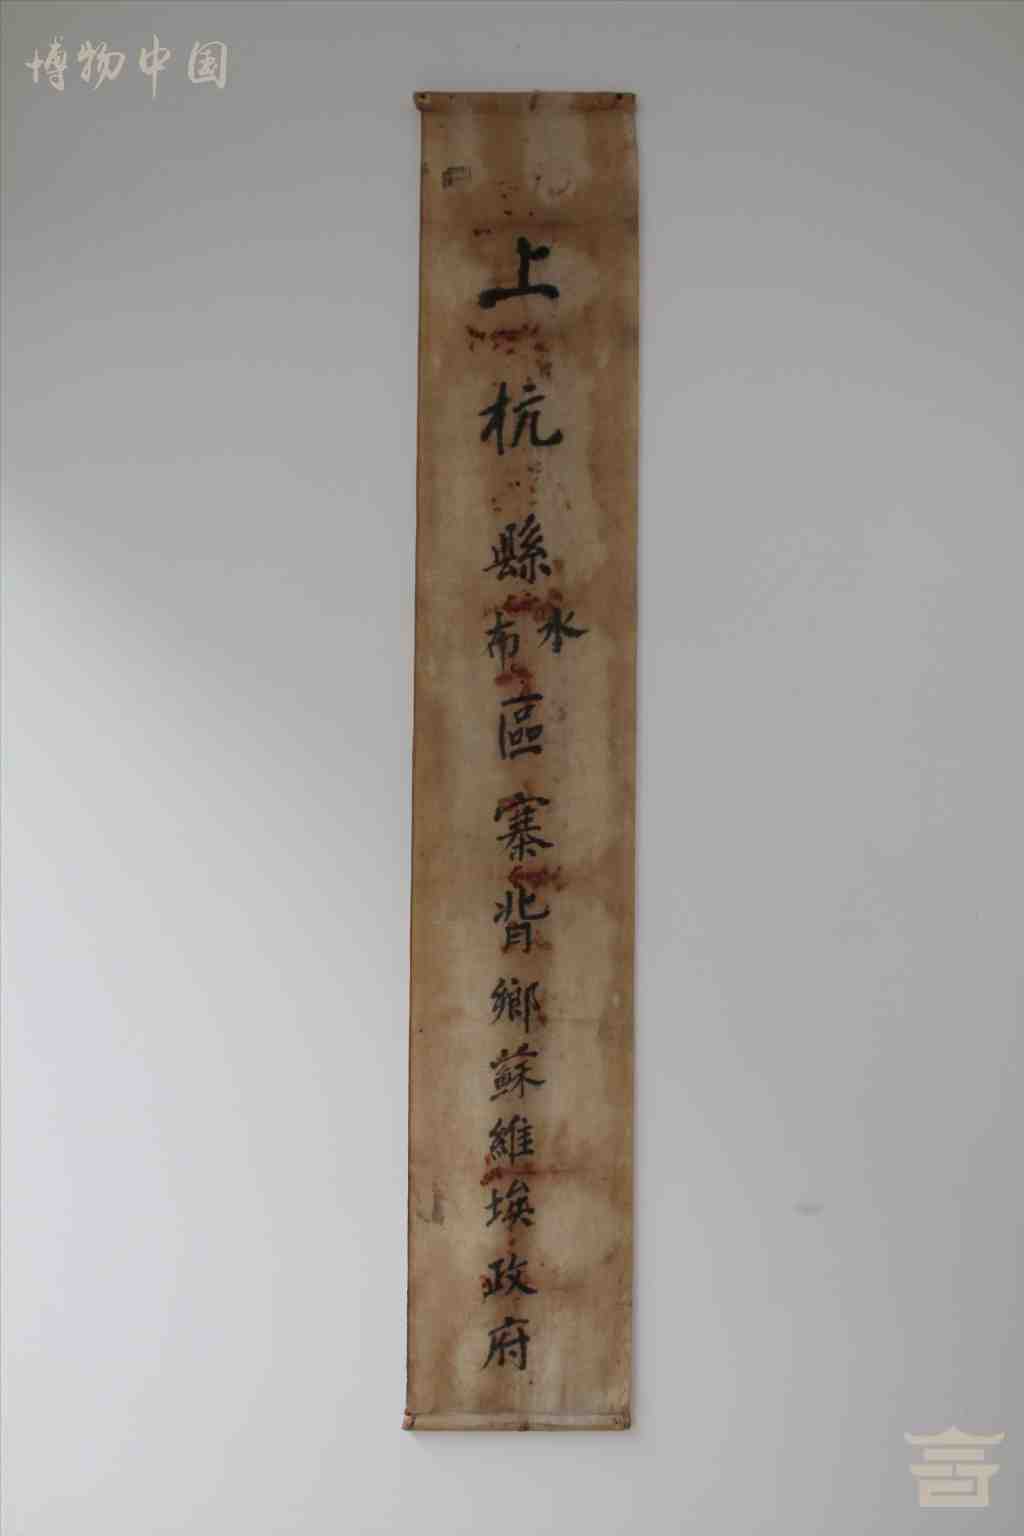 博物中国
上杭縣水布區寨背鄉蘇維埃政府